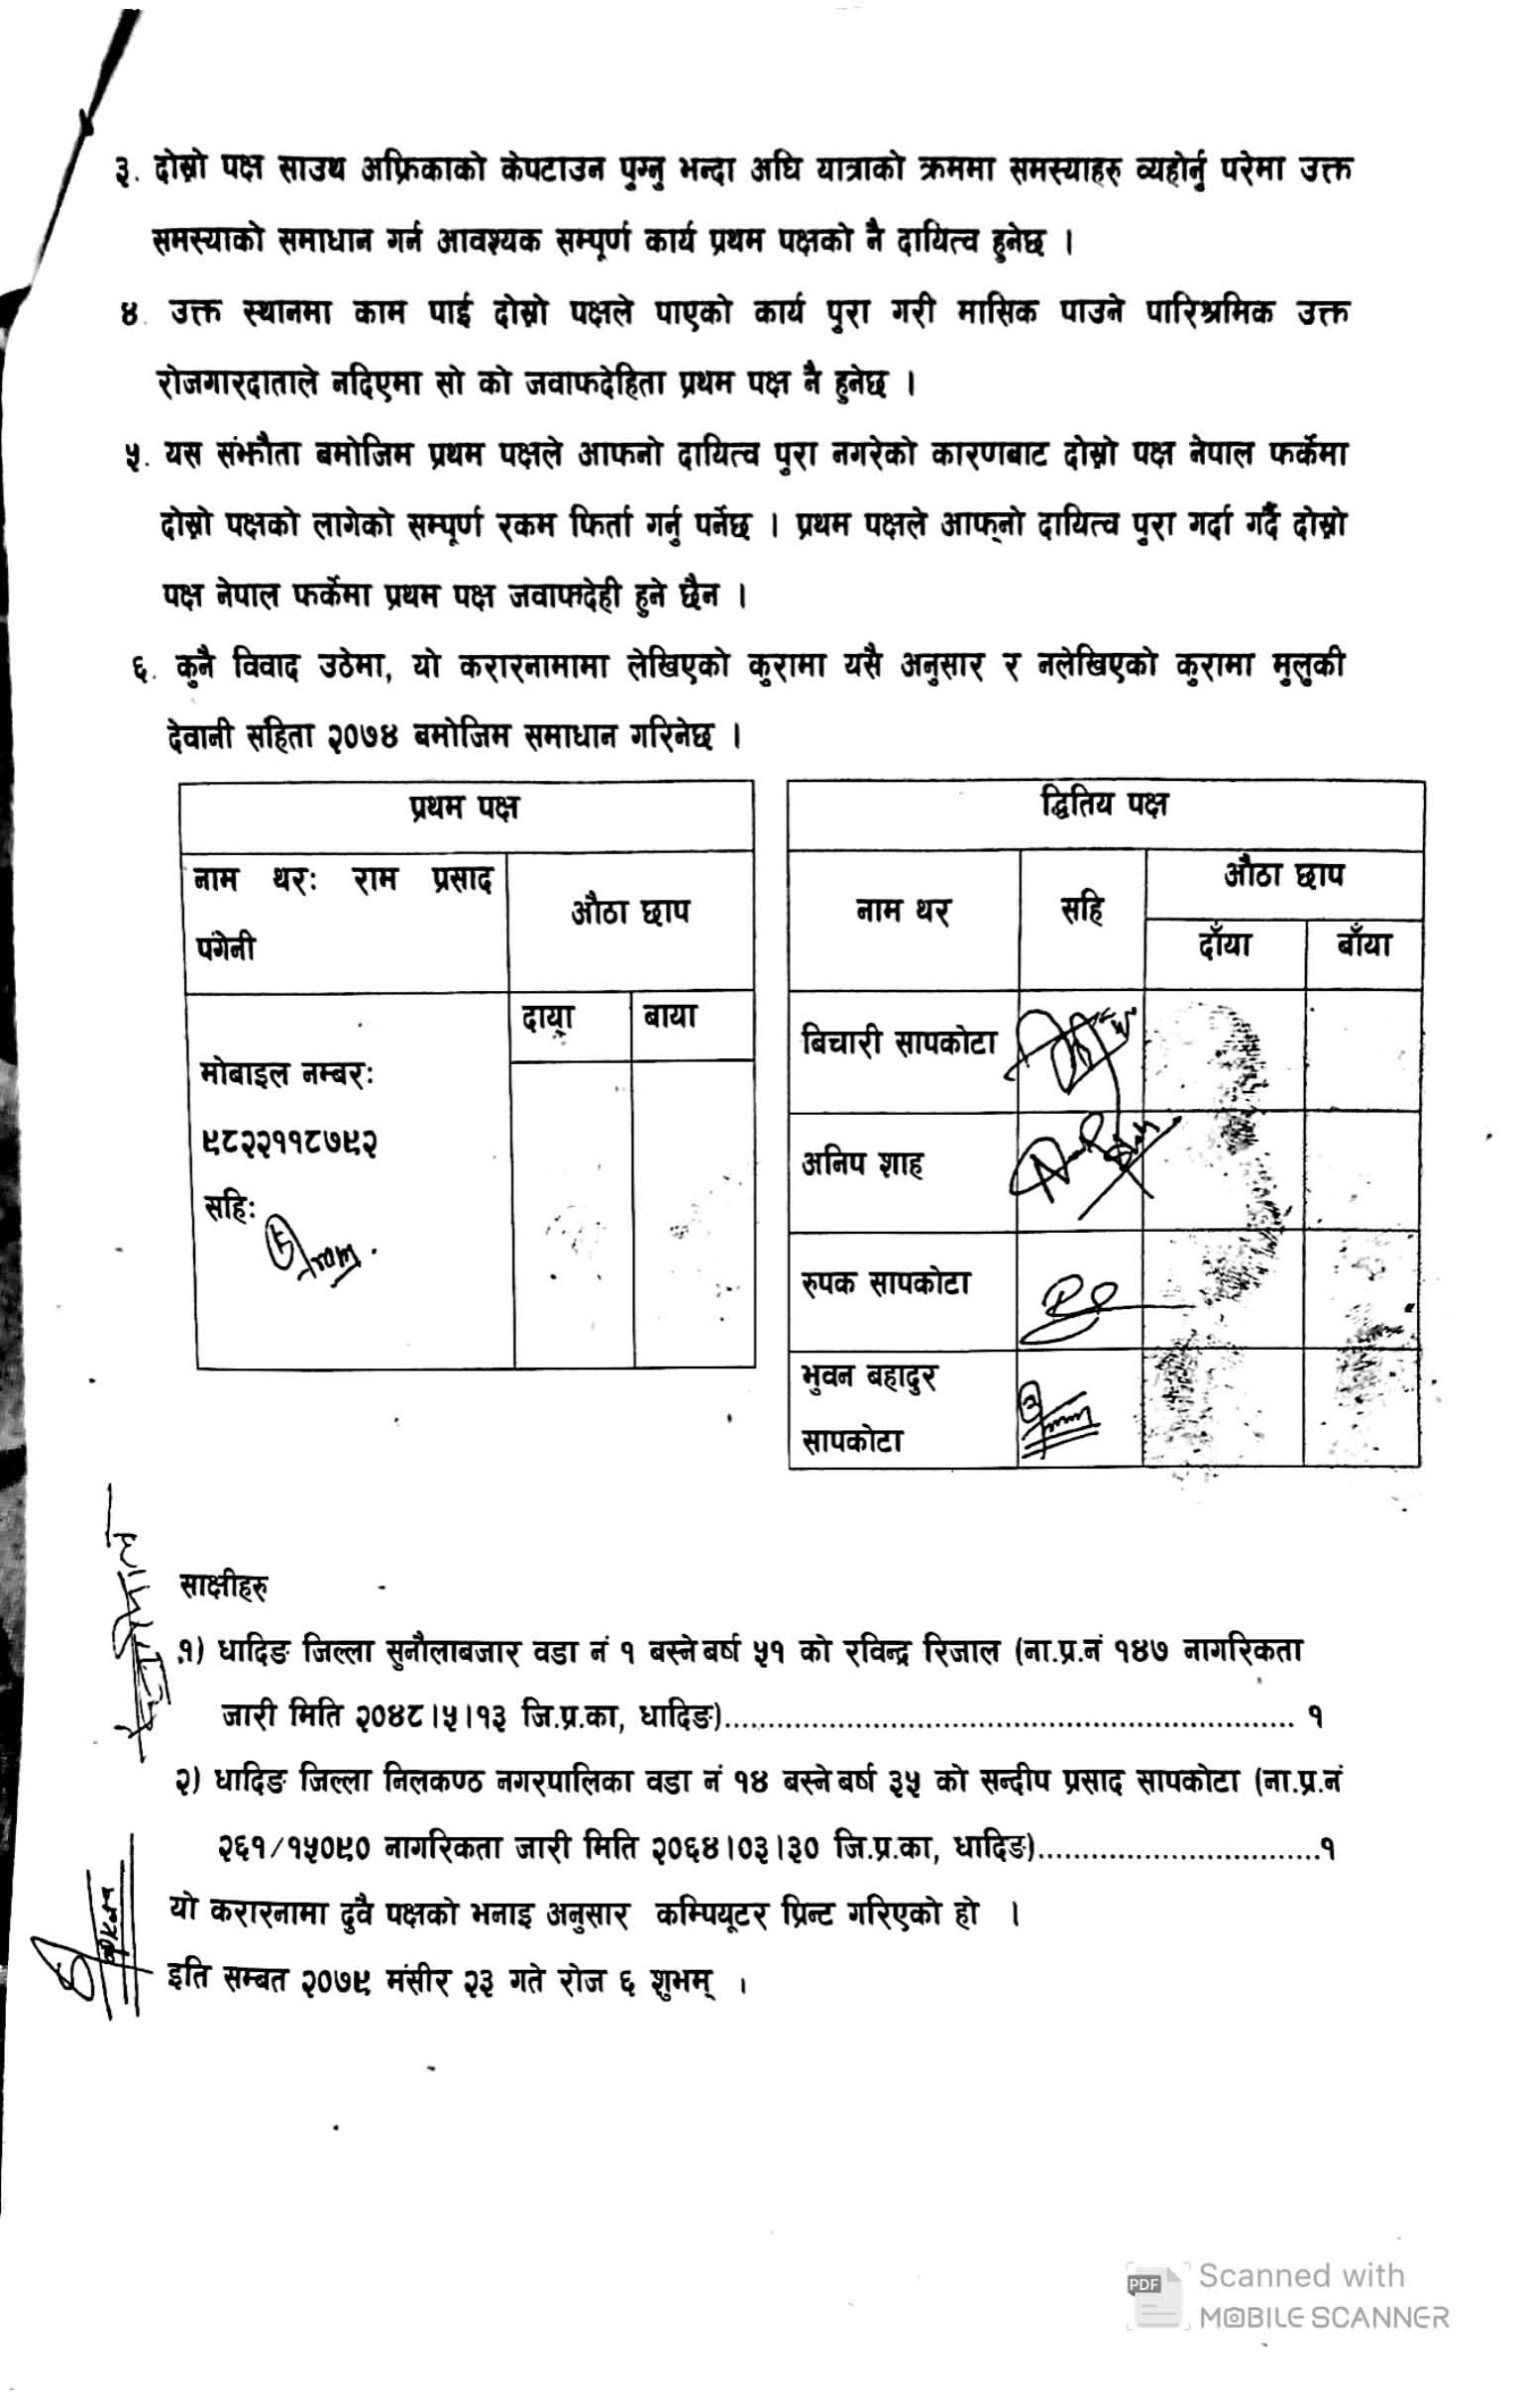 ३. दोस्रो पक्ष साउथ अफ्रिकाको केपटाउन पुग्नु भन्दा अघि यात्राको क्रममा समस्याहरु व्यहोर्नु परेमा उक्त
समस्याको समाधान गर्न आवश्यक सम्पूर्ण कार्य प्रथम पक्षको नै दायित्व हुनेछ ।
४. उक्त स्थानमा काम पाई दोस्रो पक्षले पाएको कार्य पुरा गरी मासिक पाउने पारिश्रमिक उक्त
रोजगारदाताले नदिएमा सो को जवाफदेहिता प्रथम पक्ष नै हुनेछ ।
५. यस संझौता बमोजिम प्रथम पक्षले आफनो दायित्व पुरा नगरेको कारणबाट दोस्रो पक्ष नेपाल फर्केमा
दोस्रो पक्षको लागेको सम्पूर्ण रकम फिर्ता गर्नु पर्नेछ । प्रथम पक्षले आफ्नो दायित्व पुरा गर्दा गर्दै दोस्रो
पक्ष नेपाल फर्केमा प्रथम पक्ष जवाफदेही हुने छैन ।
६. कुनै विवाद उठेमा, यो करारनामामा लेखिएको कुरामा यसै अनुसार र नलेखिएको कुरामा मुलुकी
देवानी सहिता २०७४ बमोजिम समाधान गरिनेछ ।
प्रथम पक्ष
नाम थरः राम प्रसाद
पंगेनी
औठा छाप
दाया
बाया
मोबाइल नम्बरः
९८२२११८७९२
सहिः
द्धितिय पक्ष
नाम थर
सहि
औठा छाप
दाँया
बाँया
बिचारी सापकोटा
अनिप शाह
रुपक सापकोटा
भुवन बहादुर
सापकोटा
साक्षीहरु
१) धादिङ जिल्ला सुनौलाबजार वडा नं १ बस्ने बर्ष ५१ को रविन्द्र रिजाल (ना.प्र.नं १४७ नागरिकता
जारी मिति २०४८।५।१३ जि.प्र.का, धादिङ)................................................................ १
२) धादिङ जिल्ला निलकण्ठ नगरपालिका वडा नं १४ बस्ने बर्ष ३५ को सन्दीप प्रसाद सापकोटा (ना.प्र.नं
२६१/१५०९० नागरिकता जारी मिति २०६४।०३।३० जि.प्र.का, धादिङ)................................१
यो करारनामा दुवै पक्षको भनाइ अनुसार कम्पियूटर प्रिन्ट गरिएको हो ।
इति सम्बत २०७९ मंसीर २३ गते रोज ६ शुभम् ।
PDF
Scanned with
MOBILE SCANNER